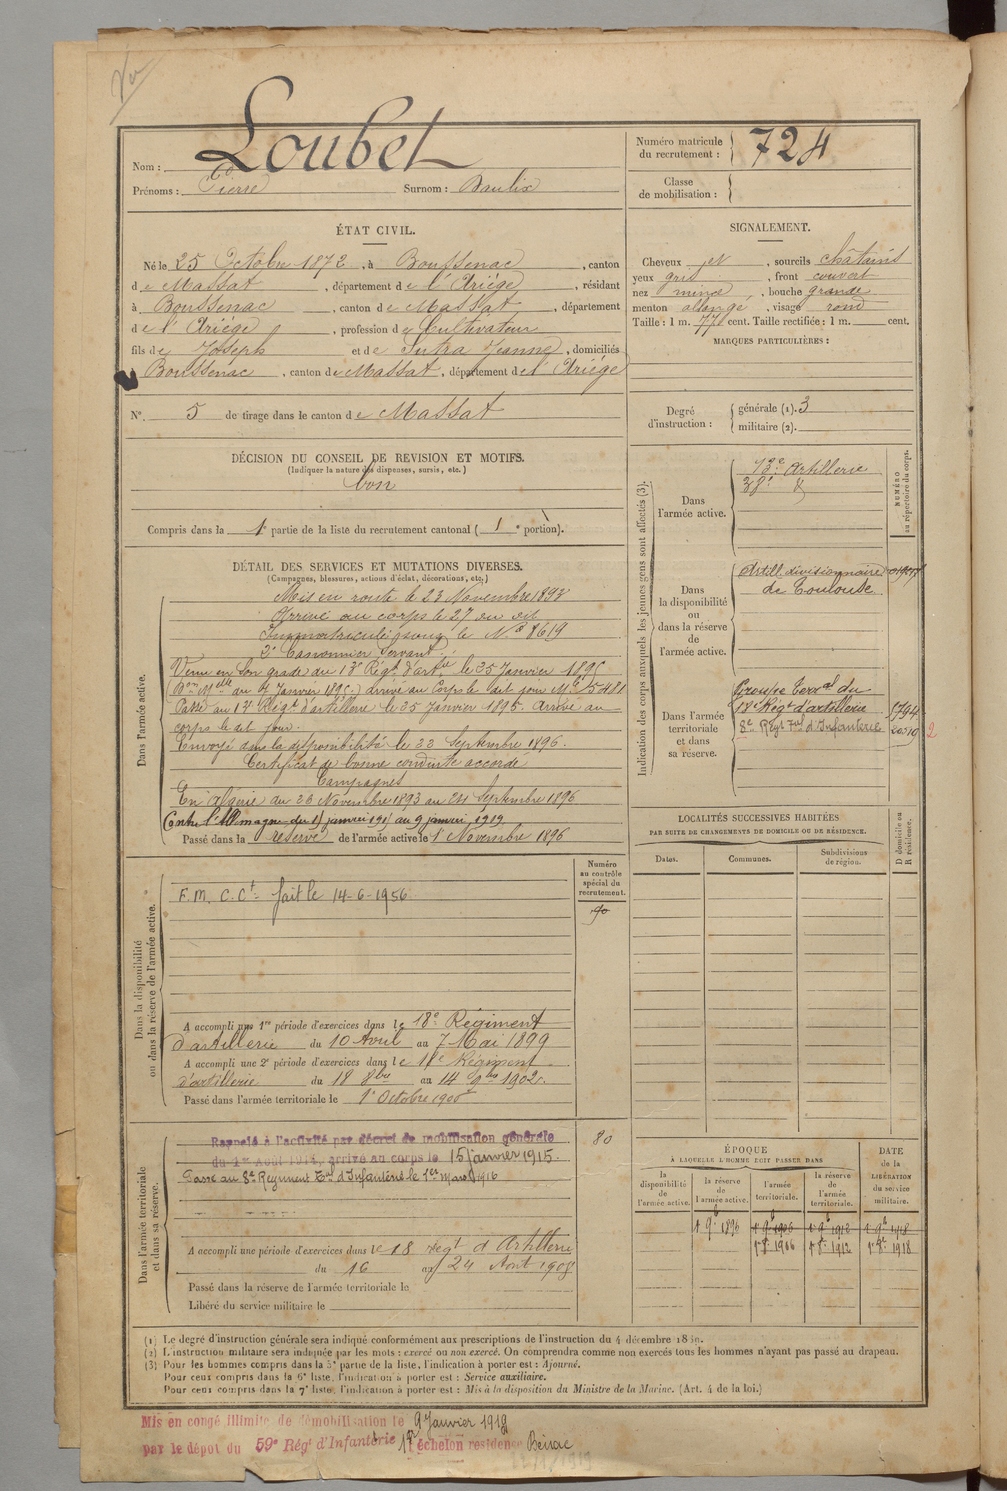 Vu
Nom : Loubet
Prénoms : Pierre Surnom : Baulix
Numéro matricule du recrutement : 724
Classe de mobilisation :
ÉTAT CIVIL.
Né le 25 Octobre 1872, à Boussenac, canton
de Massat, département de l'Ariège, résidant
à Boussenac, canton de Massat, département
de l'Ariège, profession de Cultivateur
fils de Joseph et de Sutra Jeanne, domiciliés
Boussenac, canton de Massat, département de l'Ariège
N° 5 de tirage dans le canton de Massat
SIGNALEMENT.
Cheveux et, sourcils châtains
yeux gris, front couvert
nez mince, bouche grande
menton allongé, visage rond
Taille : 1 m. 77 cent. Taille rectifiée : 1 m. cent.
MARQUES PARTICULIÈRES :
Degré d'instruction : générale (1). 3
militaire (2).
DÉCISION DU CONSEIL DE REVISION ET MOTIFS.
(Indiquer la nature des dispenses, sursis, etc.)
bon
Compris dans la 1e partie de la liste du recrutement cantonal (1e portion).
DÉTAIL DES SERVICES ET MUTATIONS DIVERSES.
(Campagnes, blessures, actions d'éclat, décorations, etc.)
Dans l'armée active.
Mis en route le 23 Novembre 1893
Arrivé au corps le 27 du dit
Immatriculé sous le N° 8619
2e Canonnier Servant
Venu en son grade du 13e Régt d'artie le 25 Janvier 1895
arrivé au Corps le dit jour No 5481
Passé au 18e Régt d'artillerie le 25 Janvier 1895. Arrivé au
corps le dit jour.
Envoyé dans la disponibilité le 22 Septembre 1896.
Certificat de bonne conduite accordé
Campagnes
En Algérie du 28 Novembre 1893 au 24 Septembre 1896
Contre l'Allemagne du 15 janvier 1915 au 9 janvier 1919
Passé dans la réserve de l'armée active le 1 Novembre 1896
Indication des corps auxquels les jeunes gens sont affectés (3).
NUMÉRO au répertoire du corps.
Dans l'armée active.
13e Artillerie
Dans la disponibilité ou dans la réserve de l'armée active.
Artill. divisionnaire
de Toulouse
Dans l'armée territoriale et dans sa réserve.
Groupe Terral du
18e Régt d'artillerie 5794
8e Régt Tal d'Infanterie 2
LOCALITÉS SUCCESSIVES HABITÉES
PAR SUITE DE CHANGEMENTS DE DOMICILE OU DE RÉSIDENCE.
D domicile ou R résidence.
Dates. Communes. Subdivisions de région.
Numéro au contrôle spécial du recrutement.
90
Dans la disponibilité ou dans la réserve de l'armée active.
F.M. C.Ct- fait le 14-6-1956
A accompli une 1re période d'exercices dans le 18e Régiment
d'artillerie du 10 Avril au 7 Mai 1899
A accompli une 2e période d'exercices dans le 18e Régiment
d'artillerie du 18 8bre au 14 9bre 1902.
Passé dans l'armée territoriale le 1er Octobre 1906
Dans l'armée territoriale et dans sa réserve.
80
Rappelé à l'activité par décret de mobilisation générale
du 1er Août 1914, arrivé au corps le 15 janvier 1915.
Passé au 8e Régiment Tal d'Infanterie le 1er Mars 1916
A accompli une période d'exercices dans le 18 Régt d'Artillerie
du 16 au 24 Août 1908
Passé dans la réserve de l'armée territoriale le
Libéré du service militaire le
ÉPOQUE
À LAQUELLE L'HOMME DOIT PASSER DANS
DATE de la LIBÉRATION du service militaire.
la disponibilité de l'armée active. la réserve de l'armée active. l'armée territoriale. la réserve de l'armée territoriale.
1 9b 1896 1 9b 1906 1 9b 1912 1 9b 1918
1 8b 1906 1 8b 1912 1 8b 1918
(1) Le degré d'instruction générale sera indiqué conformément aux prescriptions de l'instruction du 4 décembre 1889.
(2) L'instruction militaire sera indiquée par les mots : exercé ou non exercé. On comprendra comme non exercés tous les hommes n'ayant pas passé au drapeau.
(3) Pour les hommes compris dans la 5e partie de la liste, l'indication à porter est : Ajourné.
Pour ceux compris dans la 6e liste, l'indication à porter est : Service auxiliaire.
Pour ceux compris dans la 7e liste, l'indication à porter est : Mis à la disposition du Ministre de la Marine. (Art. 4 de la loi.)
Mis en congé illimité de démobilisation le 9 Janvier 1919
par le dépot du 59e Régt d'Infanterie 1er échelon residence